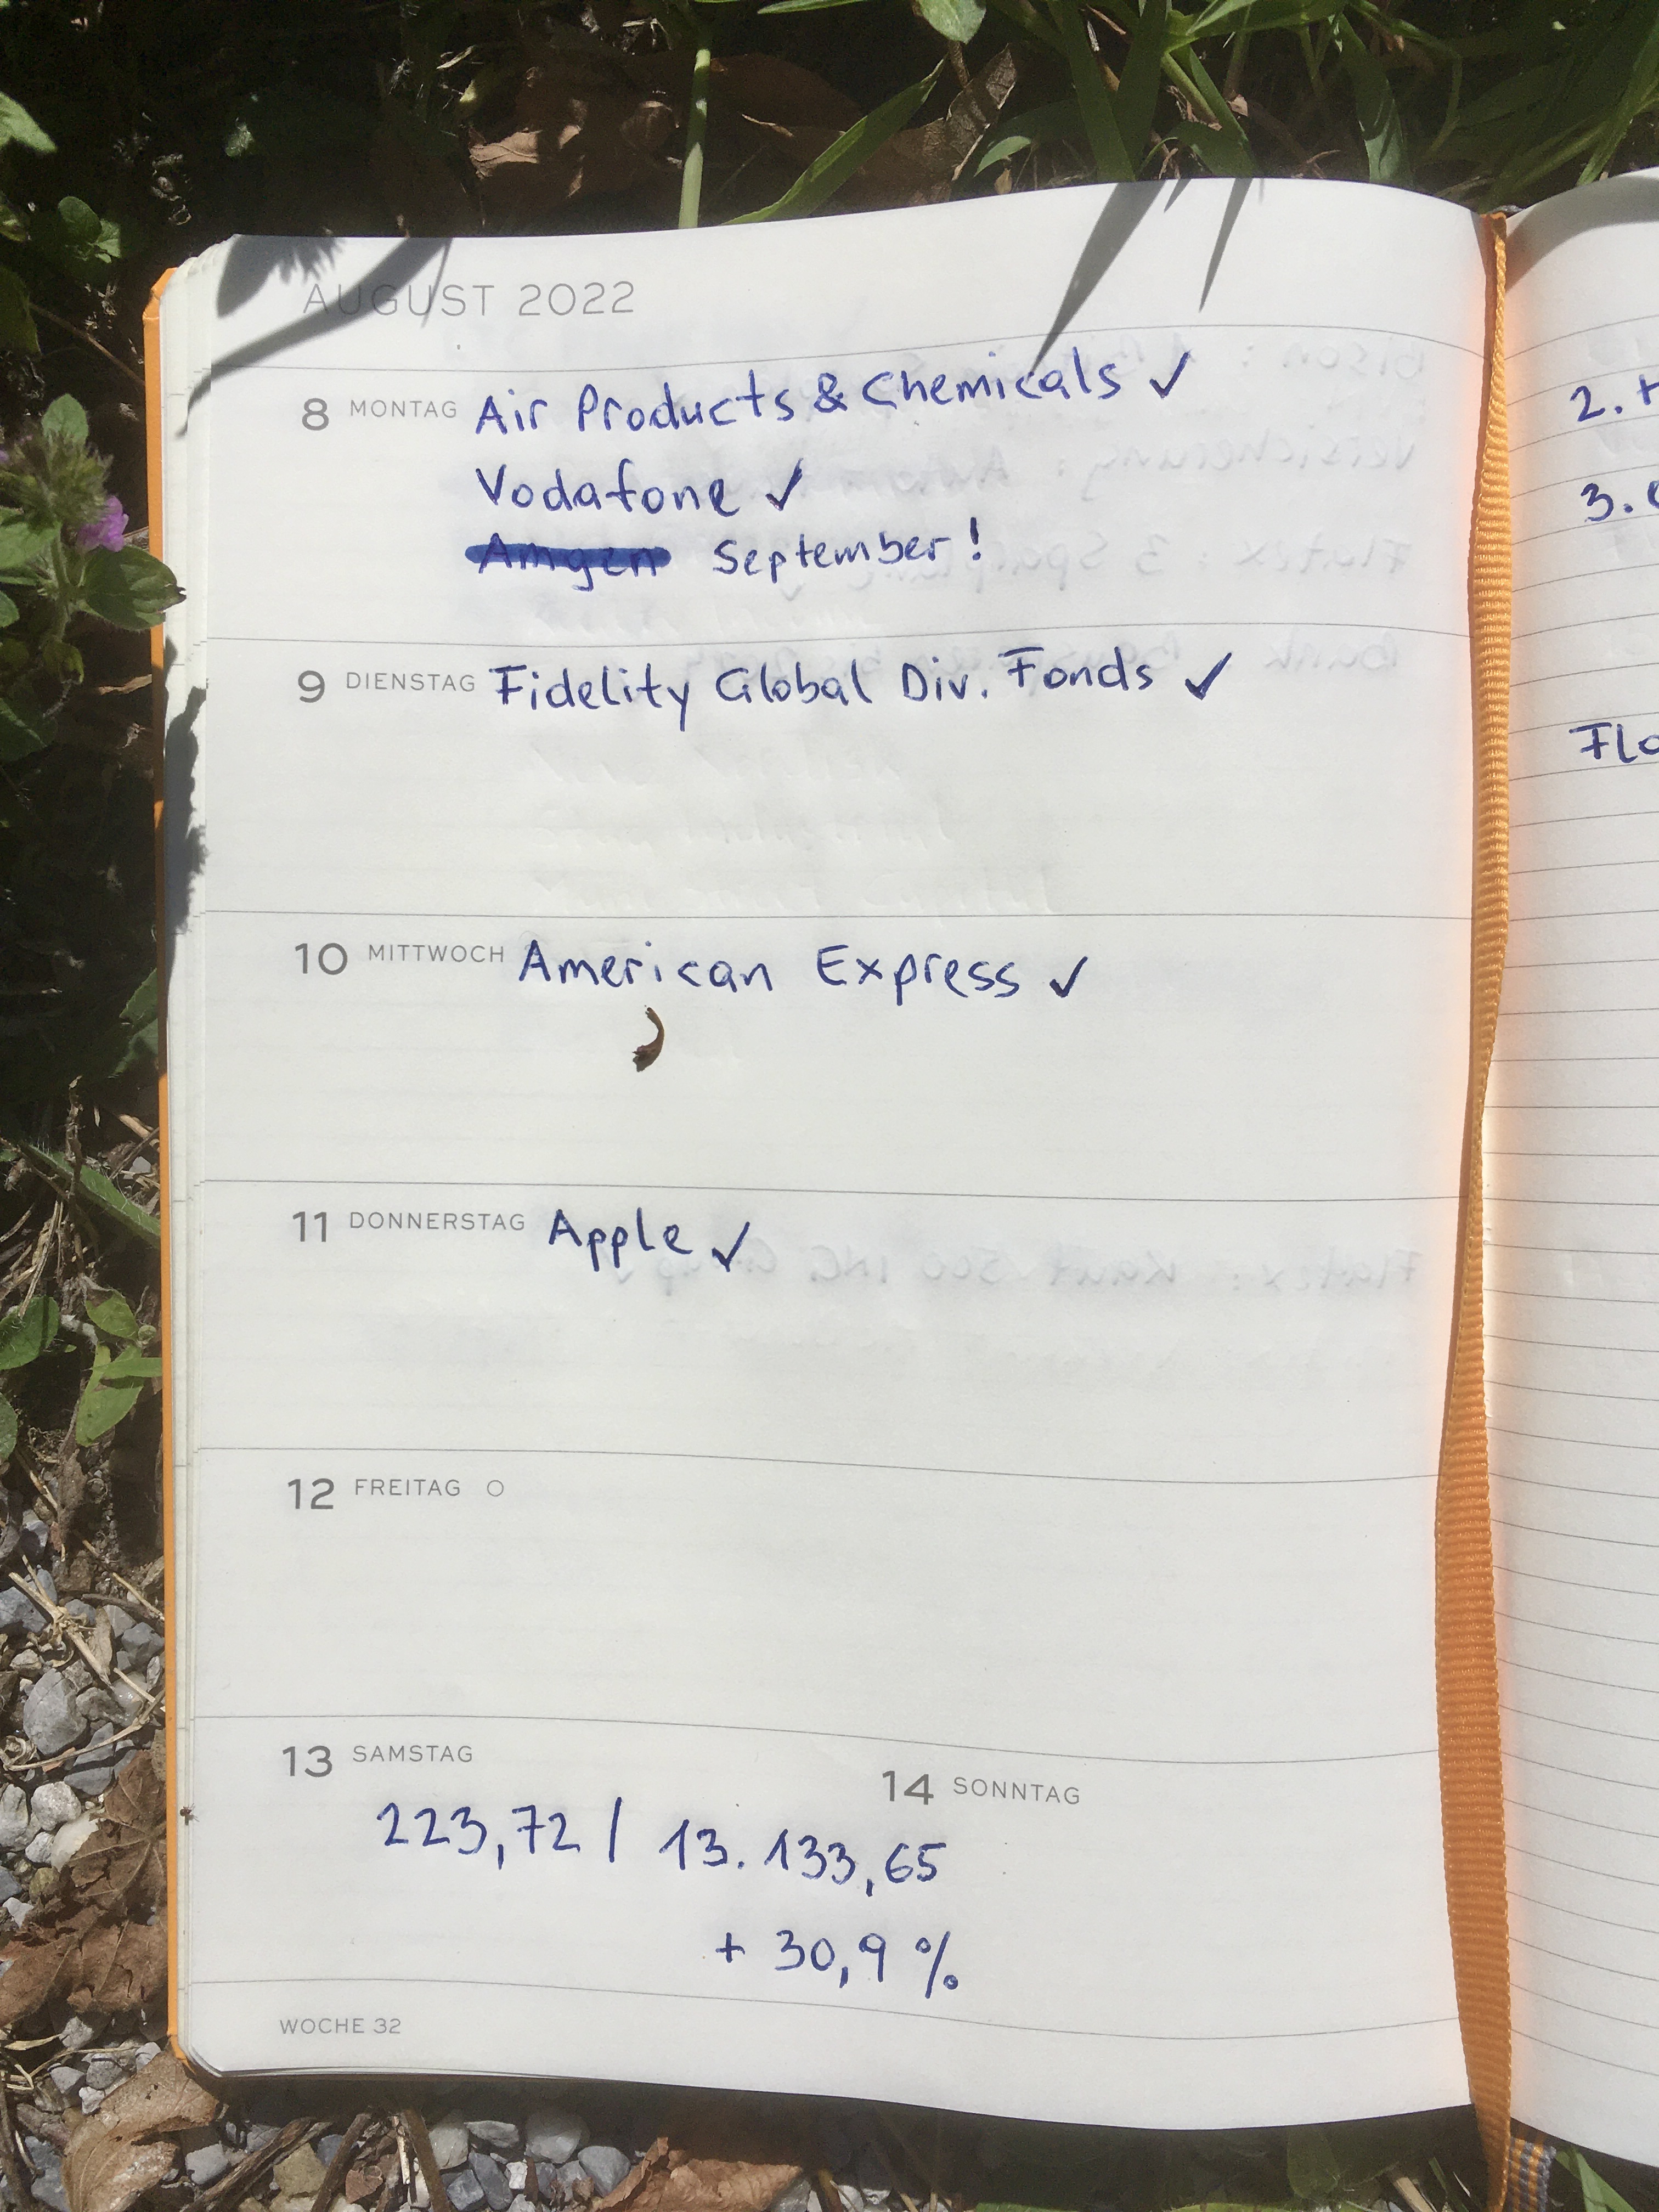 AUGUST 2022
8 MONTAG Air Products & Chemicals ✓
Vodafone ✓
Amgen September!
9 DIENSTAG Fidelity Global Div. Fonds ✓
10 MITTWOCH American Express ✓
11 DONNERSTAG Apple ✓
12 FREITAG ○
13 SAMSTAG
14 SONNTAG
223,72 / 13.133,65
+ 30,9 %
WOCHE 32
2.
3.